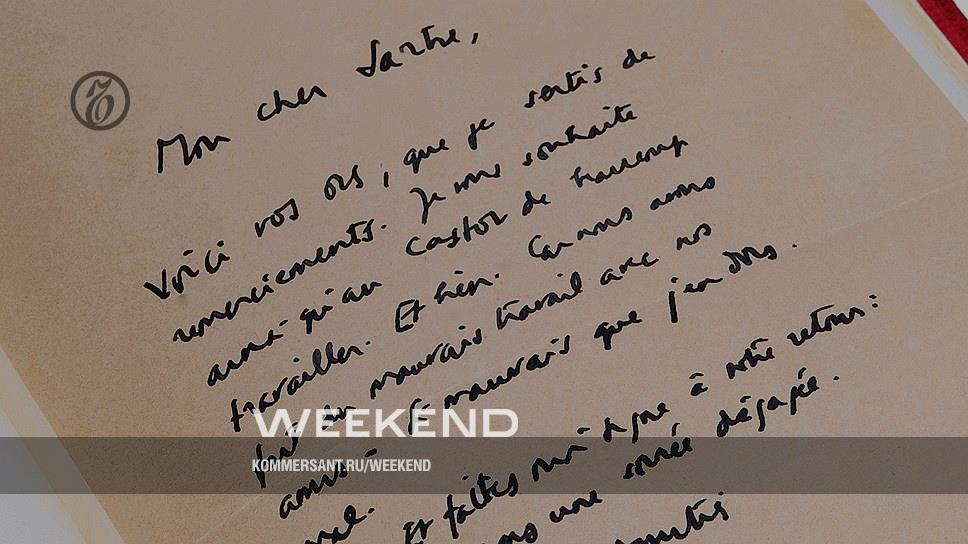 Mon cher Sartre,
Voici vos ors, que je sertis de
remerciements. Je vous souhaite
ainsi qu'au Castor de beaucoup
travailler. Et bien. Car nous avons
fait du mauvais travail avec nos
amis - si mauvais que j'en dors.
mal. Et faites moi signe à votre retour:
une soirée dégagée.
WEEKEND
KOMMERSANT.RU/WEEKEND